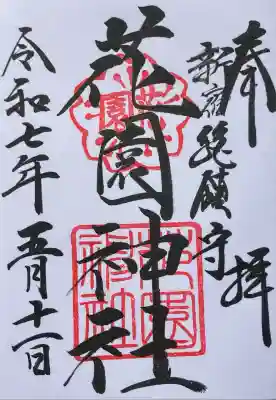 奉拝
新宿総鎮守
花園神社
令和七年五月十一日
花園
神社